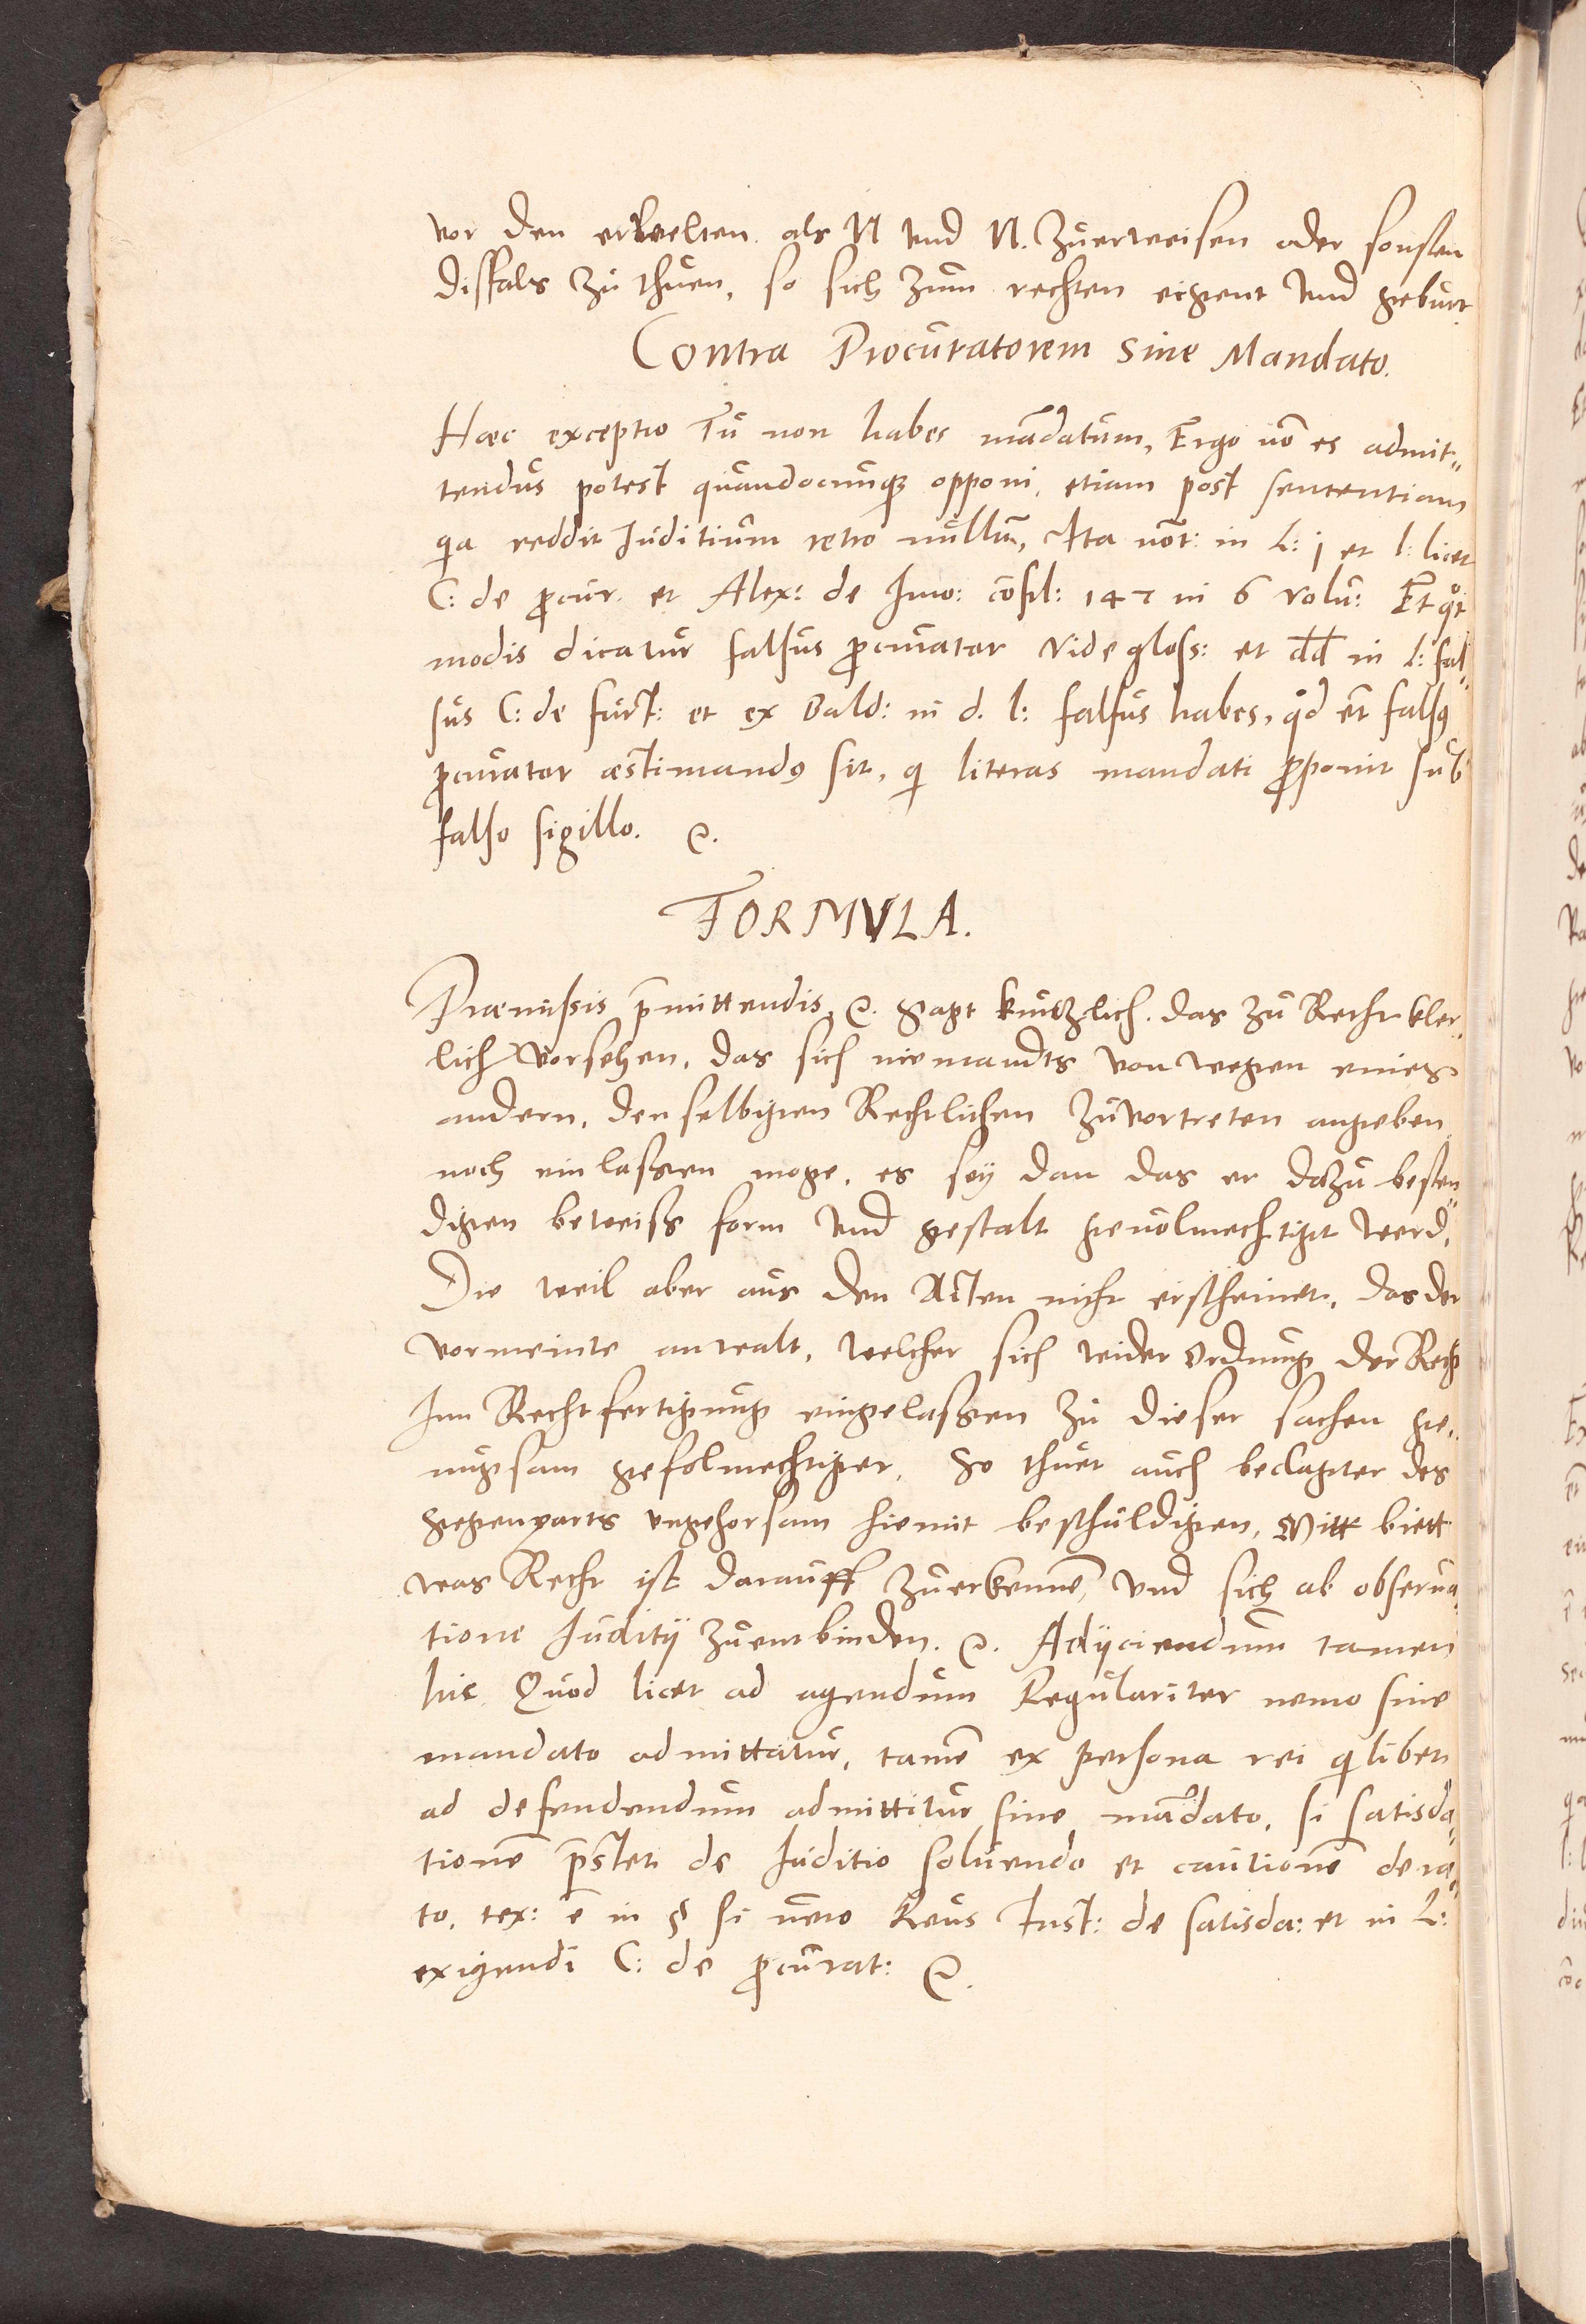 vor den erwelten als N und N. zuerweisen oder sonsten
disfals zu thuen, so sich zum rechten eigent und geburt.
Contra Procuratorem sine Mandato.
Haec exceptio Tu non habes mãdatum, Ergo nõ es admit„
tendus potest quandocunqȝ opponi, etiam post sententiam
qa reddit Juditium retro nullũ, Ita not: in L: 1 et l: licet
C: de ꝓcur. et Alex: de Imo: cõsil: 147 in 6 volu: Et qͦt
modis dicatur falsus ꝓcurator vide gloss: et dd in l: fal„
sus C: de furt: et ex Bald: in d. l: falsus habes, qd et falsꝰ
ꝓcurator æstimandꝰ sit, qi literas mandati ꝓponit sub
falso sigillo. ꝛc.
FORMVLA.
Præmissis p̃mittendis, ꝛc. sagt kurtzlich, das zu Recht kler„
lich vorsehen, das sich niemandts von wegen eines
andern, denselbigen Rechtlichen zuvortreten angeben
noch einlassen moge, es sey dan das er dozu besten„
digen beweiss form und gestalt gevolmechtigt werd,
Die weil aber aus den Acten nicht erscheinet, das der
vormeinte anwalt, welcher sich wider ordnung der Rech
Inn Rechtfertigung eingelassen zu dieser sachen ge„
nugsam gefolmechtiget, So thuet auch beclagter des
gegenparts ungehorsam hiemit beschuldigen, Mitt biett
was Recht ist darauff zuerkennẽ, und sich ab obserua„
tione Juditij zuentbinden. ꝛc. Adijciendum tamen
hic Quod licet ad agendum Regulariter nemo sine
mandato admittatur, tamẽ ex persona rei qilibet
ad defendendum admittitur sine mandato, si satisda„
tionẽ p̃stet de Juditio soluendo et cautionẽ de ra„
to, tex: ẽ in § si uero Reus Inst: de satisda: et in L:
exigendi C: de ꝓcurat: ꝛc.